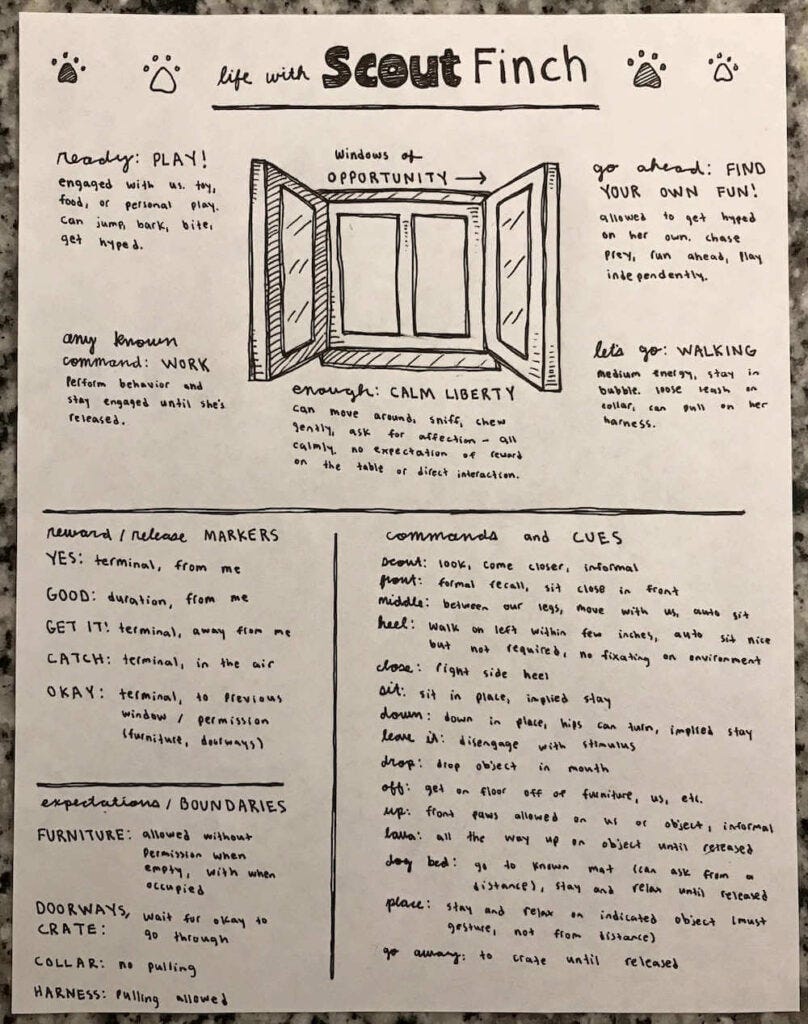 life with Scout Finch
ready: PLAY!
engaged with us. toy,
food, or personal play.
can jump, bark, bite,
get hyped.
windows of
OPPORTUNITY →
go ahead: FIND
YOUR OWN FUN!
allowed to get hyped
on her own. chase
prey, run ahead, play
independently.
any known
command: WORK
perform behavior and
stay engaged until she's
released.
enough: CALM LIBERTY
can move around, sniff, chew
gently, ask for affection - all
calmly. no expectation of reward
on the table or direct interaction.
let's go: WALKING
medium energy, stay in
bubble. loose leash on
collar, can pull on her
harness.
reward / release MARKERS
YES: terminal, from me
GOOD: duration, from me
GET IT! terminal, away from me
CATCH: terminal, in the air
OKAY: terminal, to previous
window / permission
(furniture, doorways)
expectations / BOUNDARIES
FURNITURE: allowed without
permission when
empty, with when
occupied
DOORWAYS, wait for okay to
CRATE: go through
COLLAR: no pulling
HARNESS: pulling allowed
commands and CUES
scout: look, come closer, informal
front: formal recall, sit close in front
middle: between our legs, move with us, auto sit
heel: walk on left within few inches, auto sit nice
but not required, no fixating on environment
close: right side heel
sit: sit in place, implied stay
down: down in place, hips can turn, implied stay
leave it: disengage with stimulus
drop: drop object in mouth
off: get on floor off of furniture, us, etc.
up: front paws allowed on us or object, informal
lava: all the way up on object until released
dog bed: go to known mat (can ask from a
distance), stay and relax until released
place: stay and relax on indicated object (must
gesture, not from distance)
go away: to crate until released